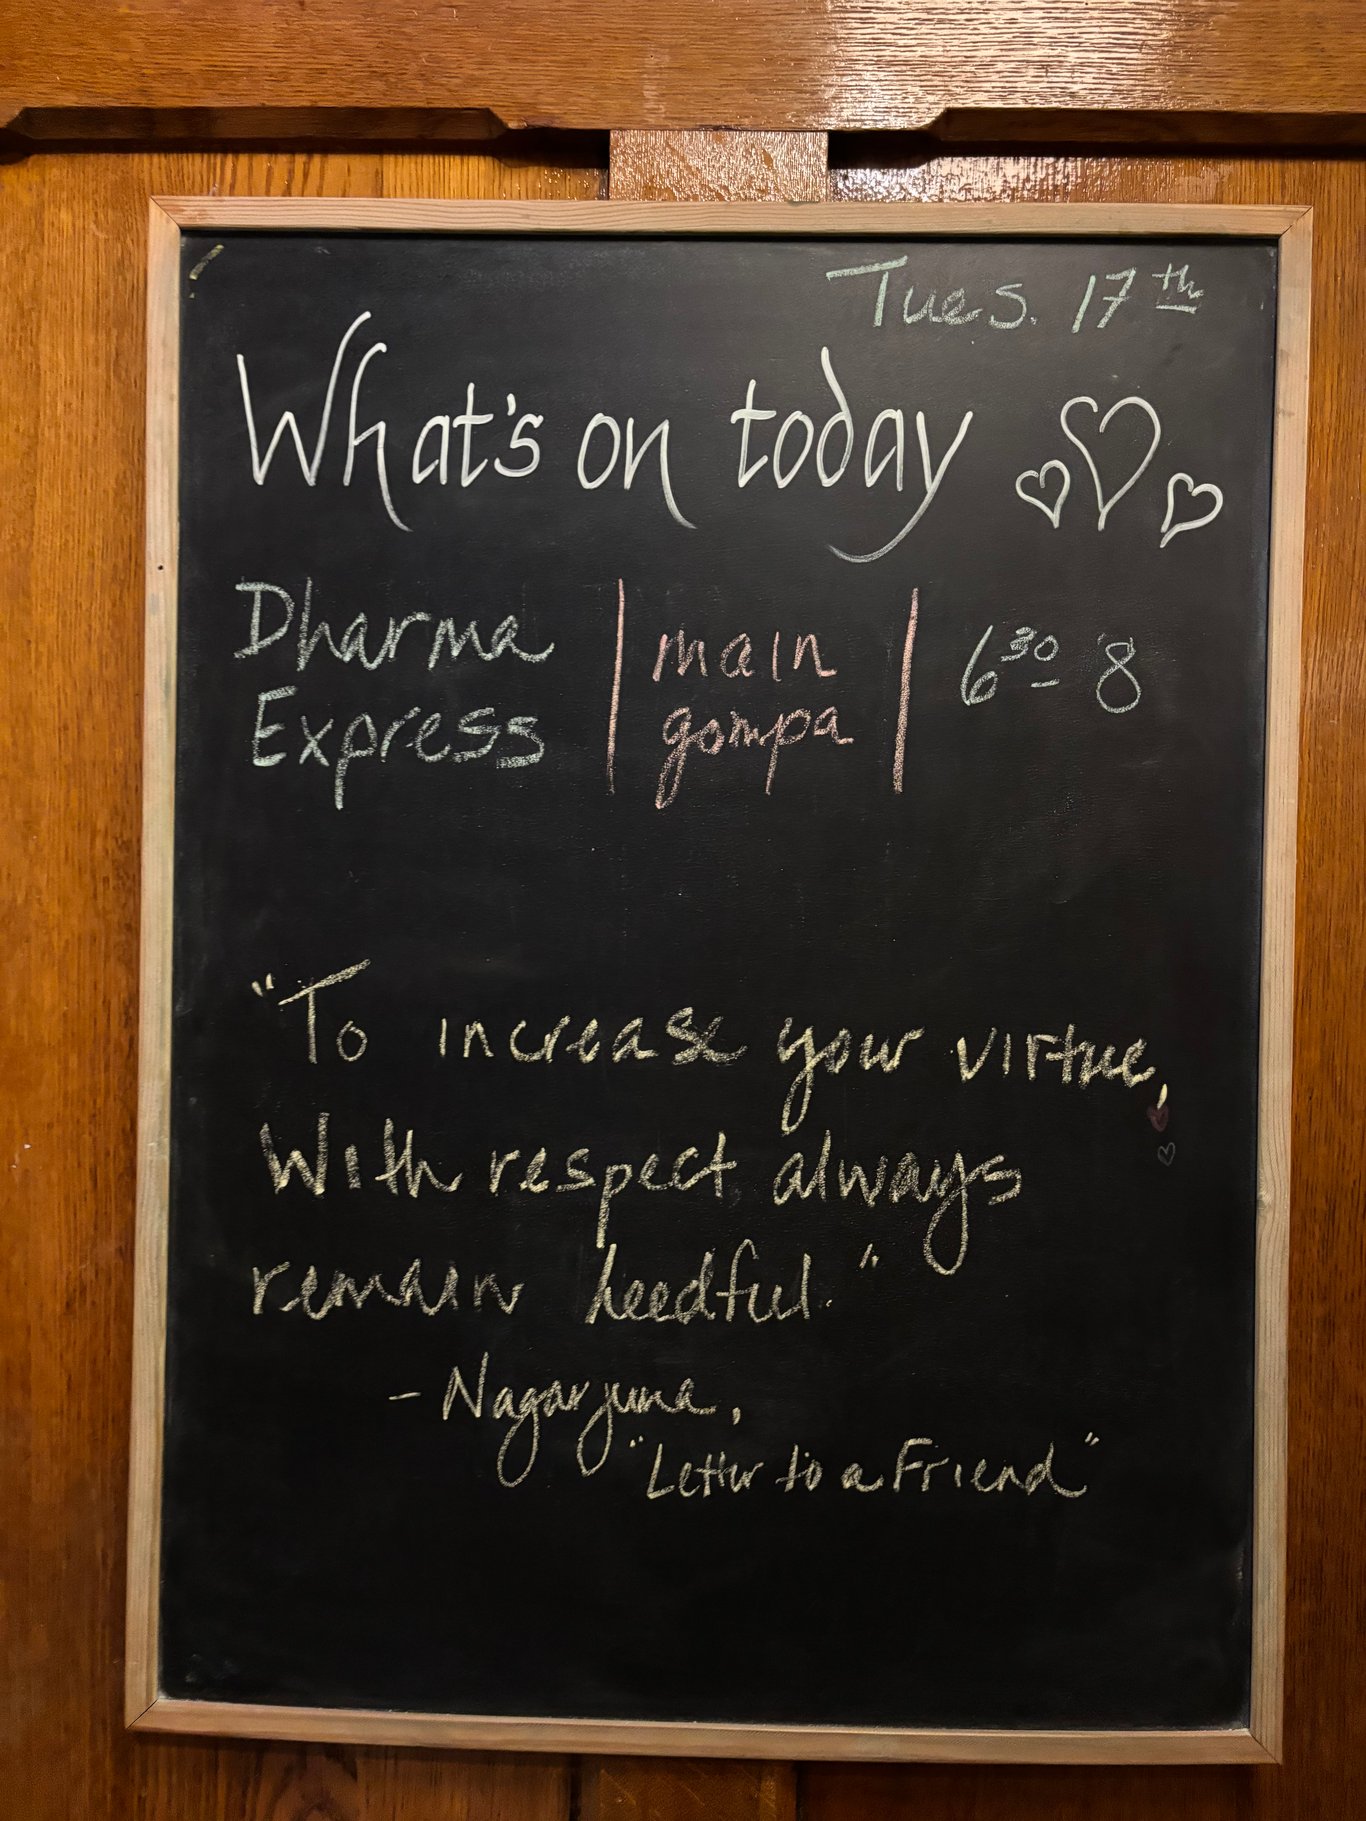 Tues. 17th
What's on today
Dharma Express | main gompa | 6 30 - 8
"To increase your virtue,
With respect always
remain heedful."
- Nagarjuna,
"Letter to a Friend"